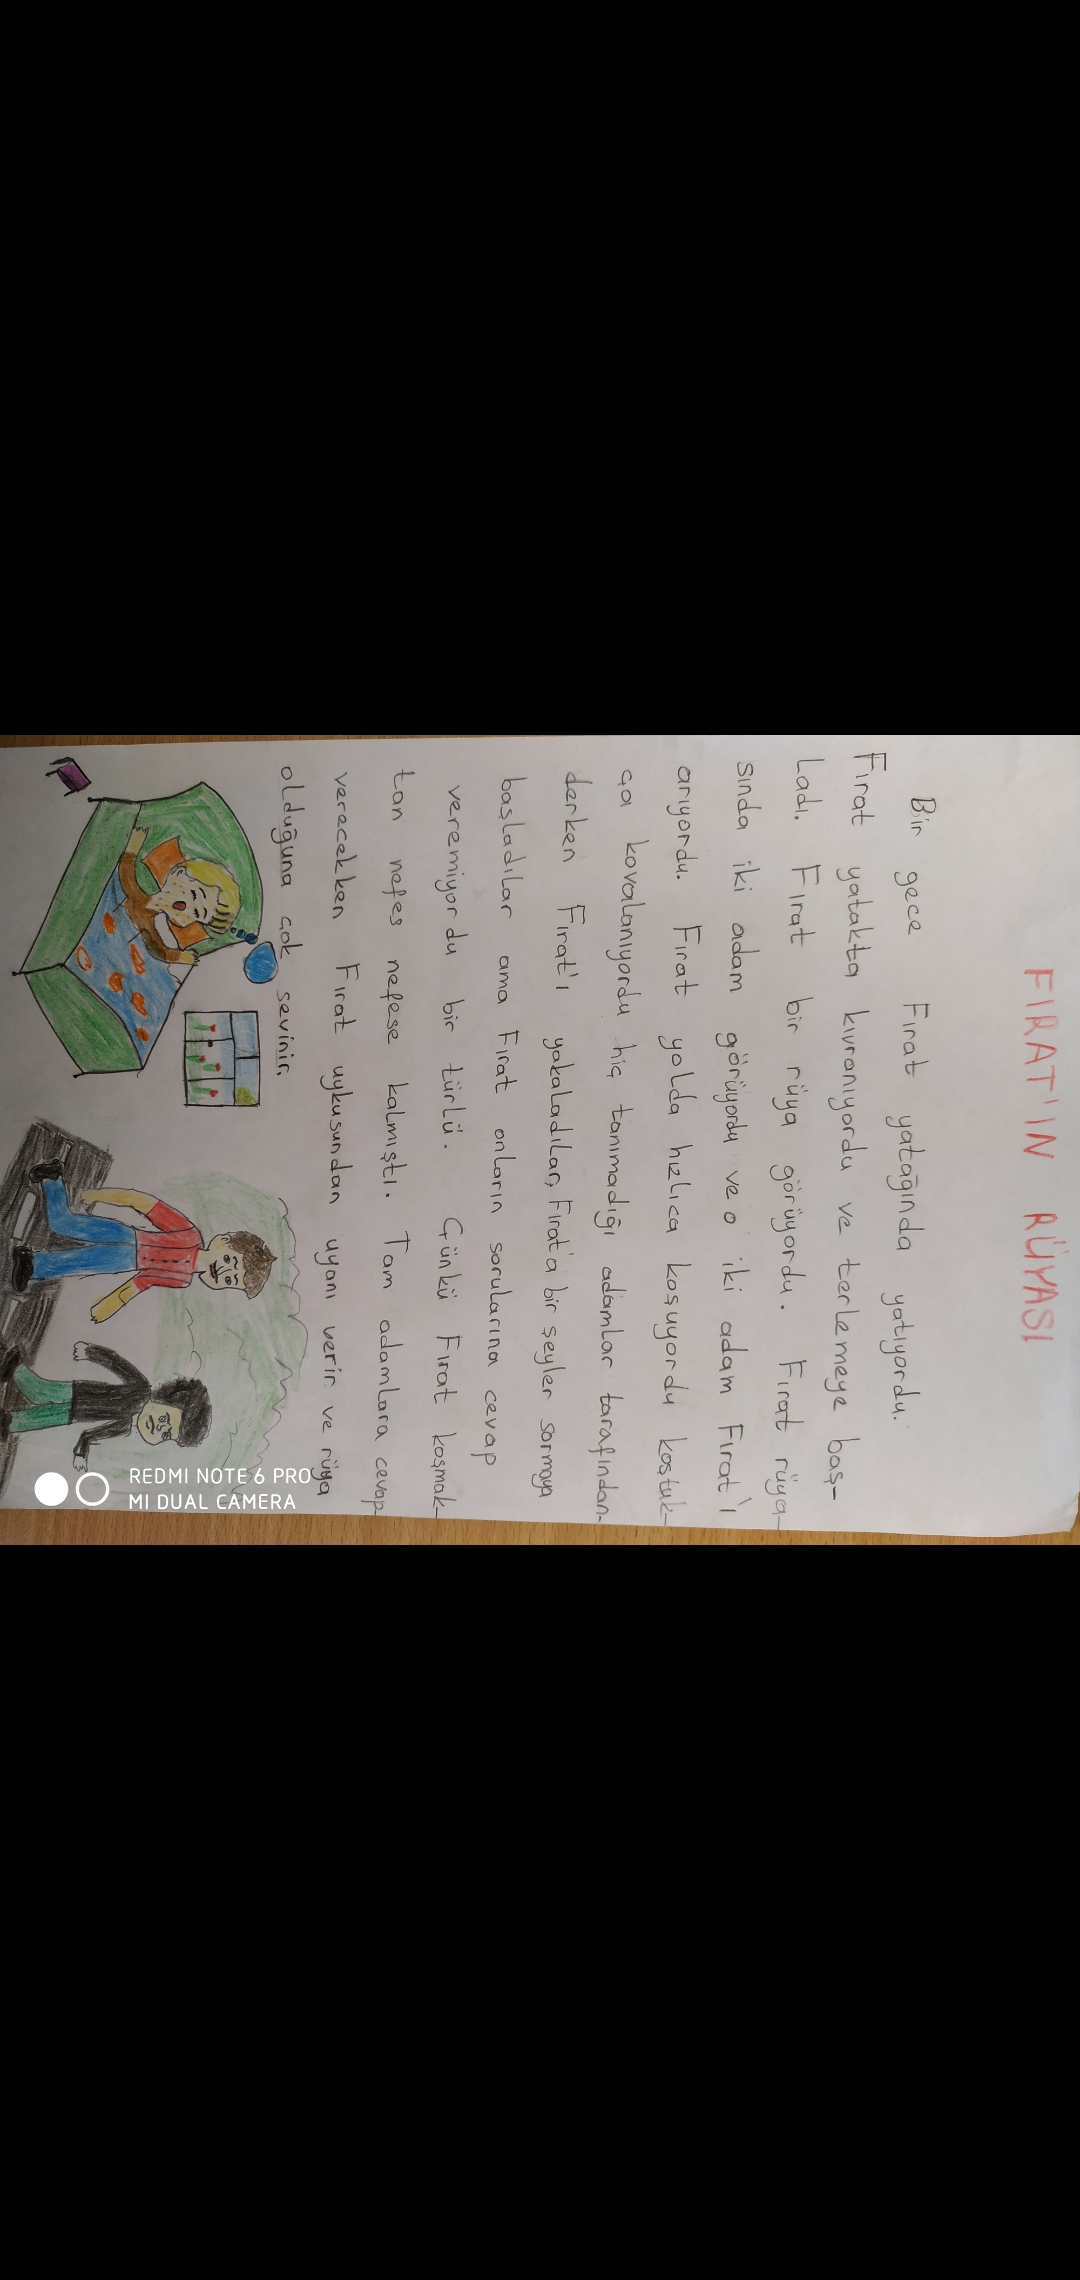 FIRAT'IN RÜYASI
Bir gece Fırat yatağında yatıyordu.
Fırat yatakta kıvranıyordu ve terlemeye baş-
ladı. Fırat bir rüya görüyordu. Fırat rüya-
sında iki adam görüyordu ve o iki adam Fırat'ı
arıyordu. Fırat yolda hızlıca koşuyordu koştuk-
ça kovalanıyordu hiç tanımadığı adamlar tarafından.
derken Fırat'ı yakaladılar, Fırat'a bir şeyler sormaya
başladılar ama Fırat onların sorularına cevap
veremiyordu bir türlü. Çünkü Fırat koşmak-
tan nefes nefese kalmıştı. Tam adamlara cevap
verecekken Fırat uykusundan uyanı verir ve rüya
olduğuna çok sevinir.
REDMI NOTE 6 PRO
MI DUAL CAMERA